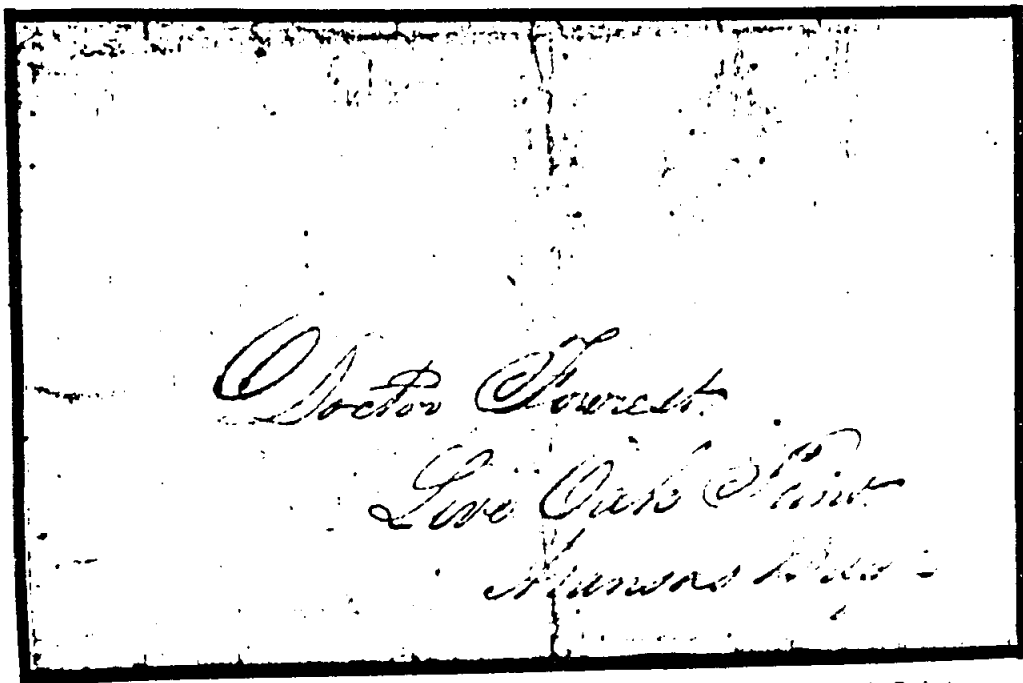 Doctor Forrest
Live Oak Point
Aransas Bay